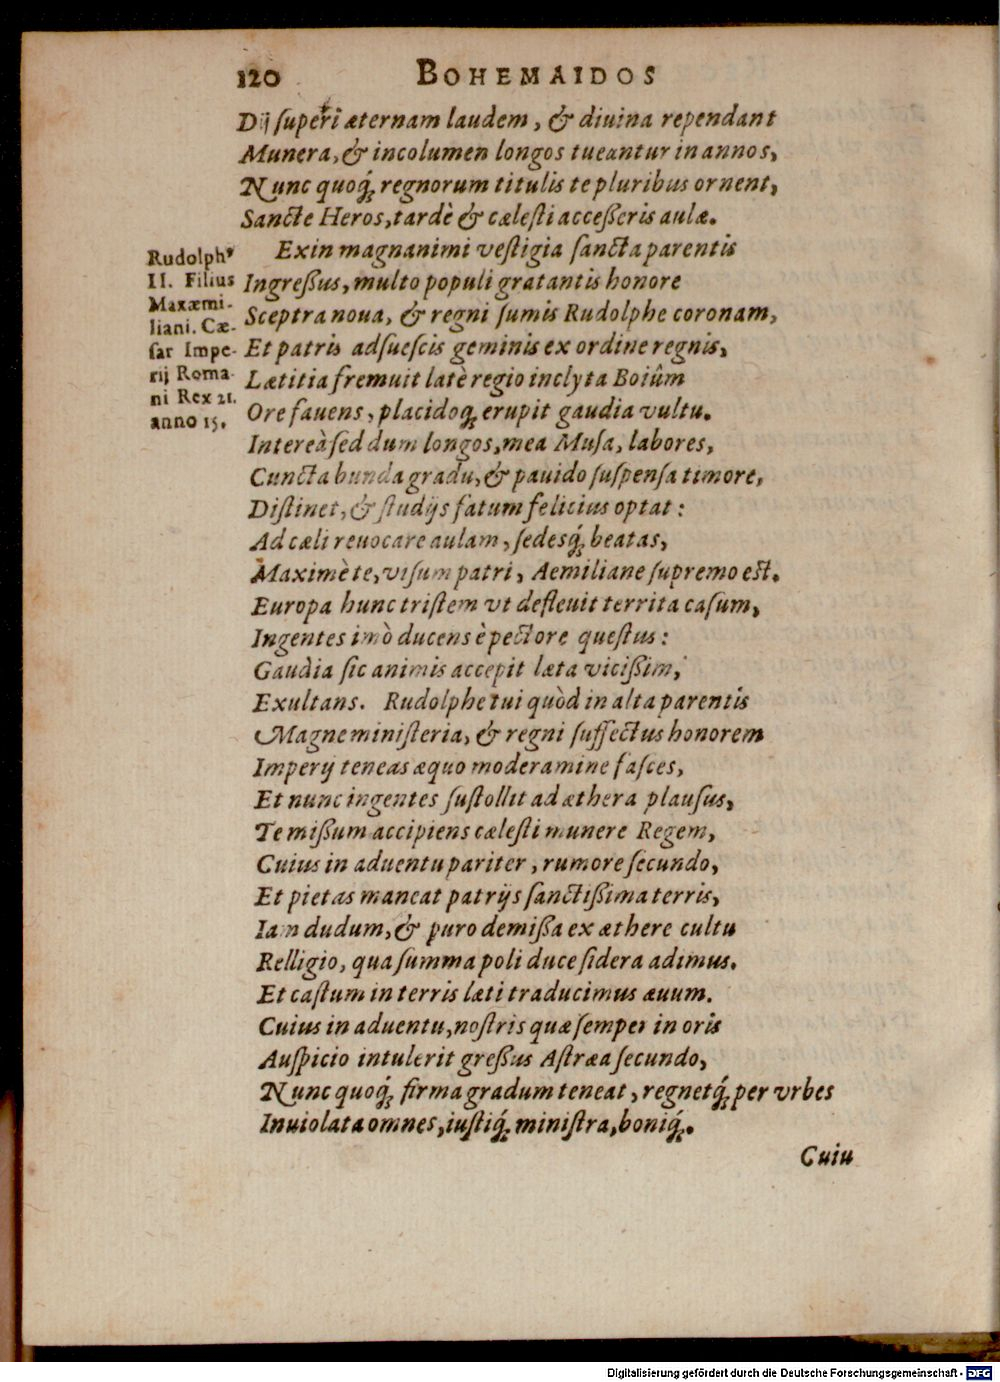 120 BOHEMAIDOS
Dij ſuperi æternam laudem, & diuina rependant
Munera, & incolumen longos tueantur in annos,
Nunc quoq́; regnorum titulis te pluribus ornent,
Sancte Heros, tardè & cæleſti acceßeris aulæ.
Exin magnanimi veſtigia ſancta parentis
Rudolphꝰ
II. Filius
Maxæmi-
liani. Cæ-
ſar Impe-
rij Roma-
ni Rex 21.
anno 15.
Ingreßus, multo populi gratantis honore
Sceptra noua, & regni ſumis Rudolphe coronam,
Et patris adſueſcis geminis ex ordine regnis,
Lætitia fremuit latè regio inclyta Boiûm
Ore fauens, placidoq́; erupit gaudia vultu.
Intereà ſed dum longos, mea Muſa, labores,
Cunctabunda gradu, & pauido ſuſpenſa timore,
Diſtinet, & ſtudijs fatum felicius optat:
Ad cæli reuocare aulam, ſedesq́; beatas,
Maximè te, viſum patri, Aemiliane ſupremo est.
Europa hunc triſtem vt defleuit territa caſum,
Ingentes imò ducens è pectore queſtus:
Gaudia ſic animis accepit læta vicißim,
Exultans. Rudolphe tui quòd in alta parentis
Magne miniſteria, & regni ſuffectus honorem
Imperij teneas æquo moderamine faſces,
Et nunc ingentes ſuſtollit ad æthera plauſus,
Te mißum accipiens cæleſti munere Regem,
Cuius in aduentu pariter, rumore ſecundo,
Et pietas maneat patrijs ſanctißima terris,
Iam dudum, & puro demißa ex æthere cultu
Relligio, qua ſumma poli duce ſidera adimus.
Et caſtum in terris læti traducimus æuum.
Cuius in aduentu, noſtris quæ ſemper in oris
Auſpicio intulerit greßus Aſtræa ſecundo,
Nunc quoq́; firma gradum teneat, regnetq́; per vrbes
Inuiolata omnes, iuſtiq́; miniſtra, boniq́;.
Cuiu
Digitalisierung gefördert durch die Deutsche Forschungsgemeinschaft - DFG